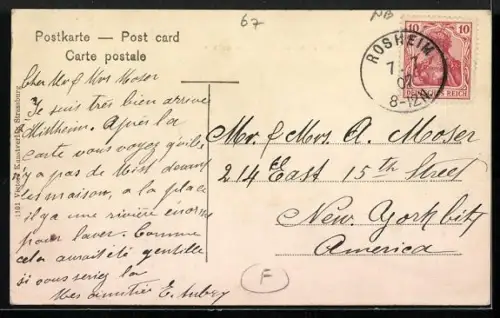 67
NB
Postkarte — Post card
Carte postale
ROSHEIM
7
07
8-12N
10 10
DEUTSCHES REICH
Cher Mr & Mrs Moser
Je suis très bien arrivée
Après la
carte vous voyez qu'il
n'y a pas de devant
les maison, a la place
il y a une rivière énorme
pour laver. Comme
cela aurait été gentille
si vous seriez la
Mes amitiés E. Aubry
Mr. & Mrs. A. Moser
214 East 15th Street
New York City
America
F
Kunstverlag, Strassburg